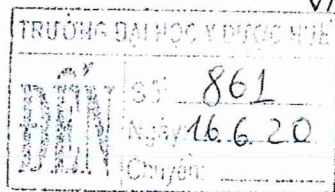 TRƯỜNG ĐẠI HỌC Y DƯỢC HUẾ
ĐẾN
Số: 861
Ngày: 16.6.20
Chuyển: